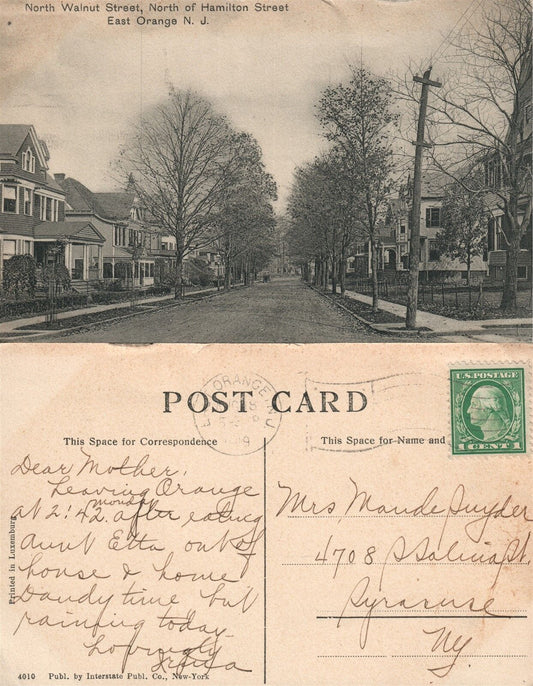 North Walnut Street, North of Hamilton Street
East Orange N. J.
POST CARD
This Space for Correspondence
This Space for Name and
U.S. POSTAGE
1 CENT 1
ORANGE
Dear Mother,
Leaving Orange
monday
at 2:42. after eating
Aunt Etta out of
house & home
Dandy time but
raining today.
Lovingly
Mrs. Maude Snyder
4708 S Salina St.
Syracuse
NY.
Printed in Luxemburg
4010 Publ. by Interstate Publ. Co., New-York